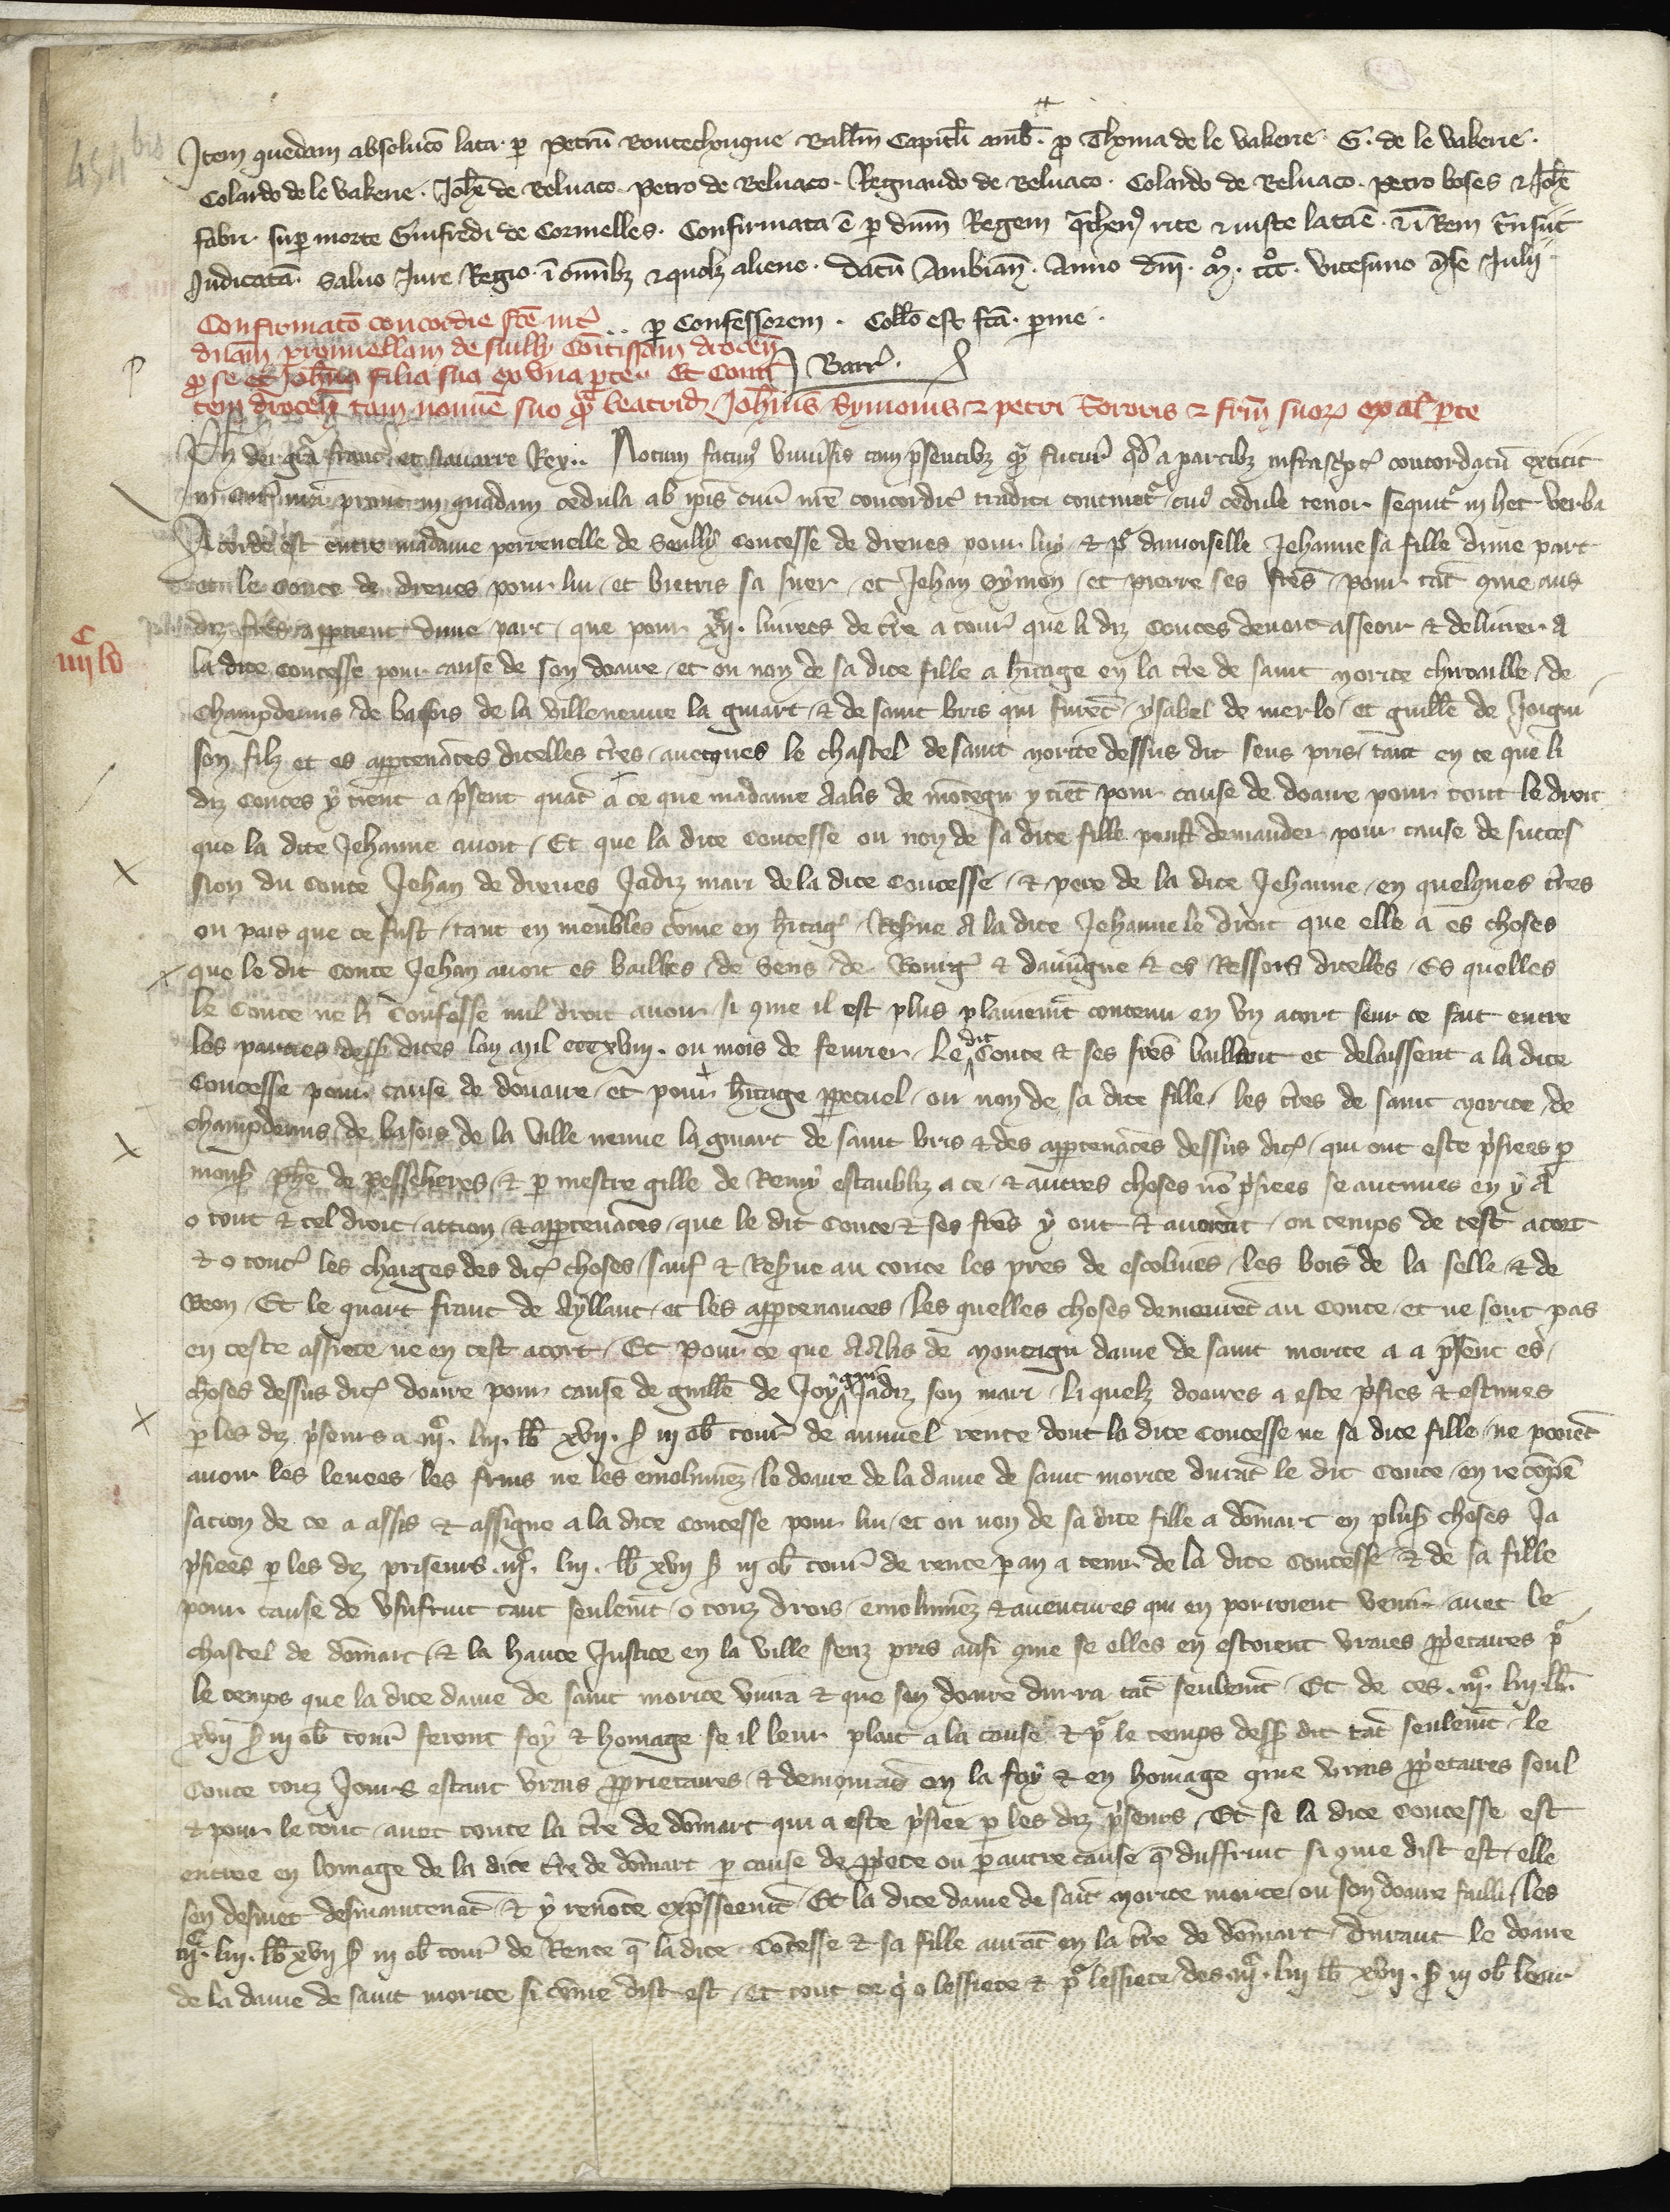 454 bis
Item quedam absoluco lata per Petru Boutechouque Ballm Capitli amb. pro Thoma de le Vakerie. G. de le Vakerie.
Colardo de le Vakerie. Johe de Beluaco. Petro de Beluaco. Regnaudo de Beluaco. Colardo de Beluaco. Petro boses & Johe
fabri super morte Guifredi de Cormelles. Confirmata e per dnm Regem rite & iuste lata e. & i Rem
Judicata. Saluo Jure Regio. i omnibz & quolz alieno. Datu Ambian. Anno dni. mo. ccco. vicesimo mse Julii
Confirmato concordie fce int
.. per Confessorem. Collo est fca. per me.
dnam perronellam de sully Comtissam drocen
Barr.
pro se et Johna filia sua ex una parte. Et Comi
tem drocen tam nomie suo qua beatricis Johnis Symonis & petri Sororis & frm suor ex al parte
Ph dei gra franc et Nauarre Rex. Notum facim vniusis tam psentibz qua futur qd a partibz infrascpt concordatu extitit
in cur nra prout in quadam cedula ab ipis cur nre concordit tradita continet cui cedule tenor sequit in hec verba
Acorde est entre madame perrenelle de Seully Contesse de dreues pour luy & pr damoiselle Jehanne sa fille dune part
et le Conte de dreues pour lui et bietris sa suer et Jehan Symon et Pierre ses fres pour tat 9me aus
diz fres appartient dune part que pour livrees de tre a tour que li diz Contes deuoit asseoir & deliurer a
iiiic lv
la dite contesse pour cause de son doaire et ou non de sa dite fille a hitage en la tre de saint Morice chiroaille de
champdeuis de bassois de la villeneuue la guiart & de saint bris qui furet ysabel de merlo et guille de Joigni
son filz et es appartenaces dicelles tres auecques le chastel de saint Morice dessus dit sens pris tant en ce que li
diz Contes y tient a psent quat a ce que madame Aalis de motegu y tiet pour cause de doaire pour tout le droit
que la dite Jehanne auoit Et que la dite Contesse ou non de sa dite fille peust demander pour cause de succes
sion du Conte Jehan de dreues Jadiz mari de la dite Contesse & pere de la dite Jehanne en quelques tres
ou pais que ce fust tant en meubles come en hitag Resue a la dite Jehanne le droit que elle a es choses
que le dit Conte Jehan auoit es baillies de Sens de Bourg & dauugne & es Ressors dicelles Es quelles
le Conte ne li Confesse nul droit auoir si 9me il est plus plainemt contenu en vn acort seur ce fait entre
les parties dess dites lan mil cccxviii. ou mois de feurier. Le dit Conte & ses fres baillent et delaissent a la dite
Contesse pour cause de douaire et pour hitage ppetuel ou non de sa dite fille les tres de saint Morice de
champdeuis de basois de la ville neuue la guiart de saint bris & des appartenaces dessus dit qui ont este psiees p
mons Phe de Pesselieres & p mestre gille de Remy establiz a ce & autres choses no psiees se aucunes en y a
o tout & tel droit action & appartenaces que le dit Conte & ses fres y ont & auoient ou temps de cest acort
& o tout les charges des dit choses sauf & Resue au conte les pres de escoliues les bois de la selle & de
Beon Et le quart franc de Ayllant et les appartenances les quelles choses demeuret au Conte et ne sont pas
en ceste assiete ne en cest acort Et Pour ce que Aalis de Montagu dame de saint morice a a psent es
choses dessus dit doaire pour cause de guille de Joygni Jadiz son mari li quelz doaires a este psies & estimes
p les diz pseurs a lb xvii. s iii ob tour de annuel rente dont la dite Contesse ne sa dite fille ne poriet
auoir les leuees les fruis ne les emolumez le doaire de la dame de saint morice durat le dit Conte en recope
sation de ce a assis & assigne a la dite Contesse pour lui et ou non de sa dite fille a domart en plus choses Ja
psiees p les diz priseurs lb xvii s iii ob tour de rente p an a tenir de la dite Contesse & de sa fille
pour cause de vsufruit tant seulemt o touz drois emolumez & auentures qui en porroient venir auec le
chastel de domart & la haute Justice en la ville senz pris ausi 9me se elles en estoient vraies ppetaires pr
le temps que la dite dame de saint morice viura & que son doaire durra tat seulemt Et de ces
xvii s iii ob tour feront foy & homage se il leur plait a la cause & pr le temps dess dit tat seulemt le
Conte touz Jours estant vrais pprietaires & demourad en la foy & en homage 9me vrais ppetaires seul
& pour le tout auec toute la tre de domart qui a este psiee p les diz pseurs Et se la dite Contesse est
entree en homage de la dite tre de domart p cause de ppete ou p autre cause q dusfruit si 9me dist est elle
sen desmet desmaintenat & y renoce expssement Et la dite dame de sait Morice morte ou son doaire failli les
lb xvii s iii ob tour de Rente q la dite Cotesse & sa fille auot en la tre de domart durant le doaire
de la dame de saint morice si come dist est Et tout ce q o lessiete & pr lessiete des lb xvii. s iii ob leur